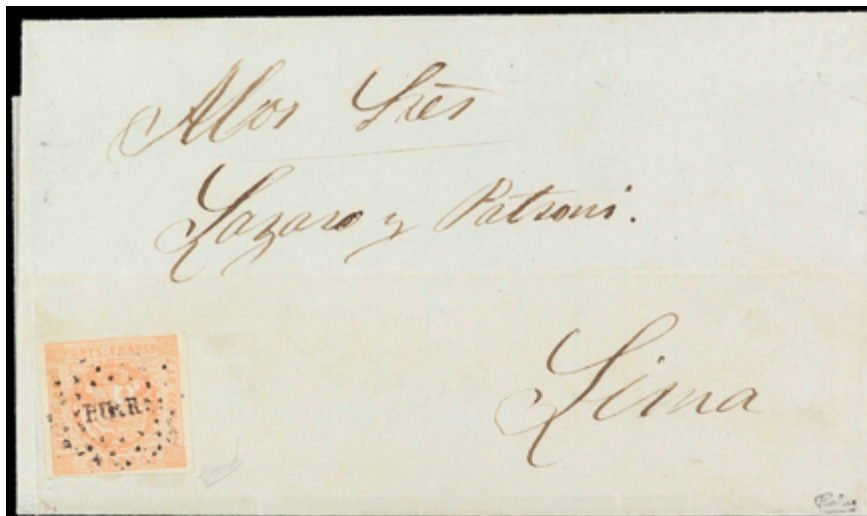 A los Sres
Lazaro y Patroni.
Lima
PORTE FRANCO